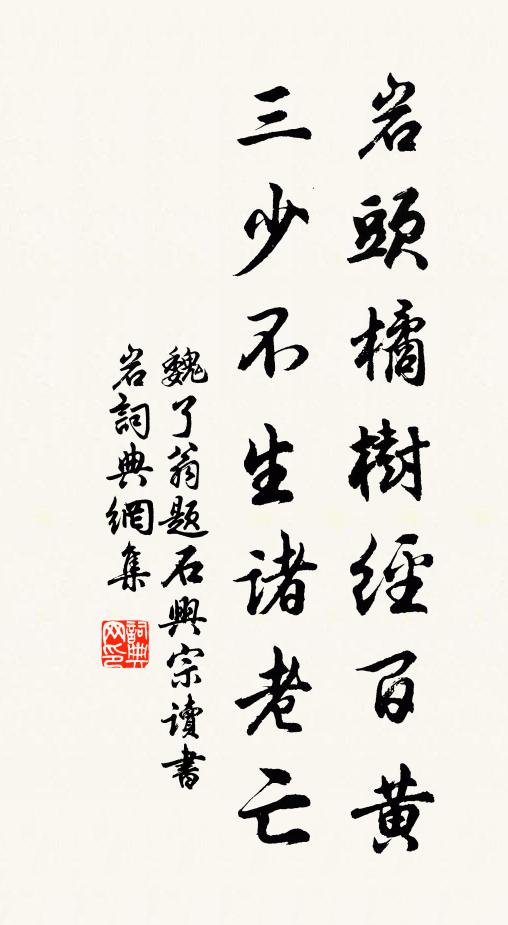 岩頭橘樹經百黃
三少不生諸老亡
魏了翁题石興宗讀書
岩詞典網集
詞典网印